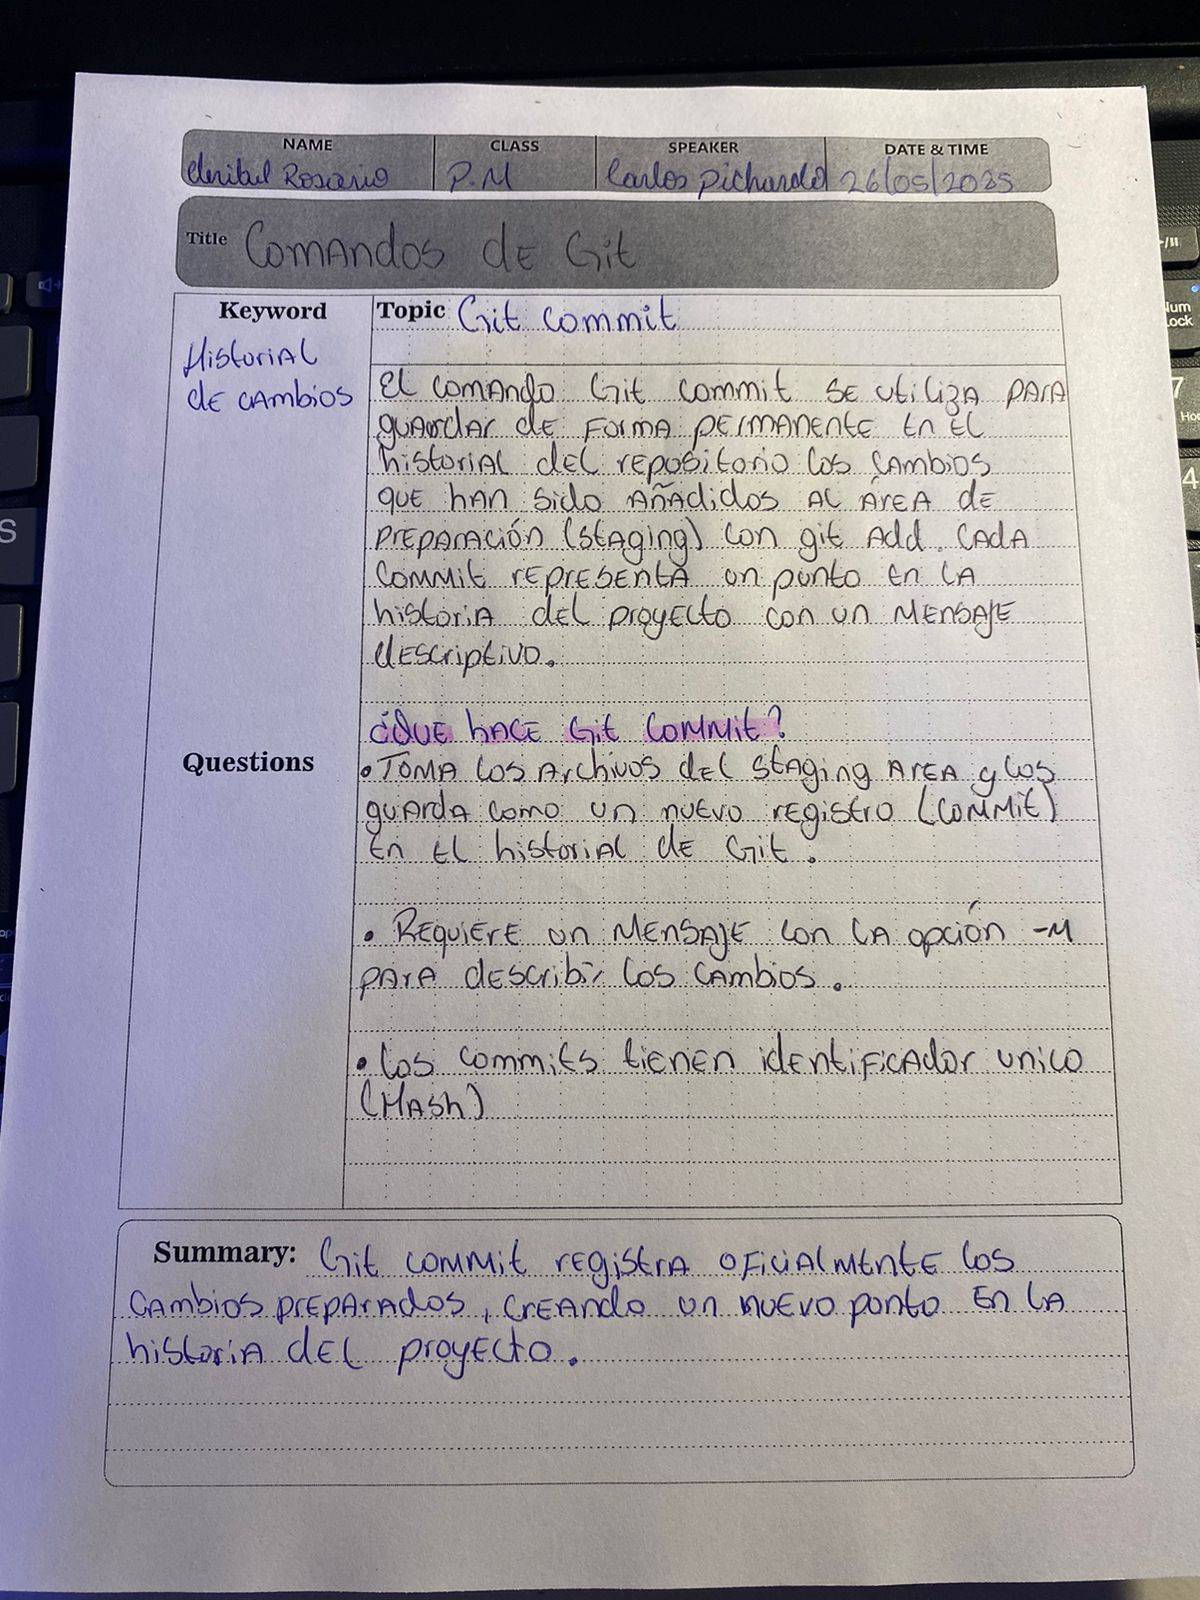 NAME CLASS SPEAKER DATE & TIME
Rosario P.M Carlos Pichardo 26/05/2025
Title Comandos de Git
Keyword Topic Git commit
Historial
de cambios
El comando Git commit se utiliza para
guardar de forma permanente en el
historial del repositorio los cambios
que han sido añadidos al área de
preparación (staging) con git add. Cada
commit representa un punto en la
historia del proyecto con un mensaje
descriptivo.
¿Que hace Git commit?
Questions
• Toma los archivos del staging area y los
guarda como un nuevo registro (commit)
en el historial de Git.
• Requiere un mensaje con la opción -M
para describir los cambios.
• Los commits tienen identificador unico
(Hash)
Summary: Git commit registra oficialmente los
cambios preparados, creando un nuevo punto en la
historia del proyecto.